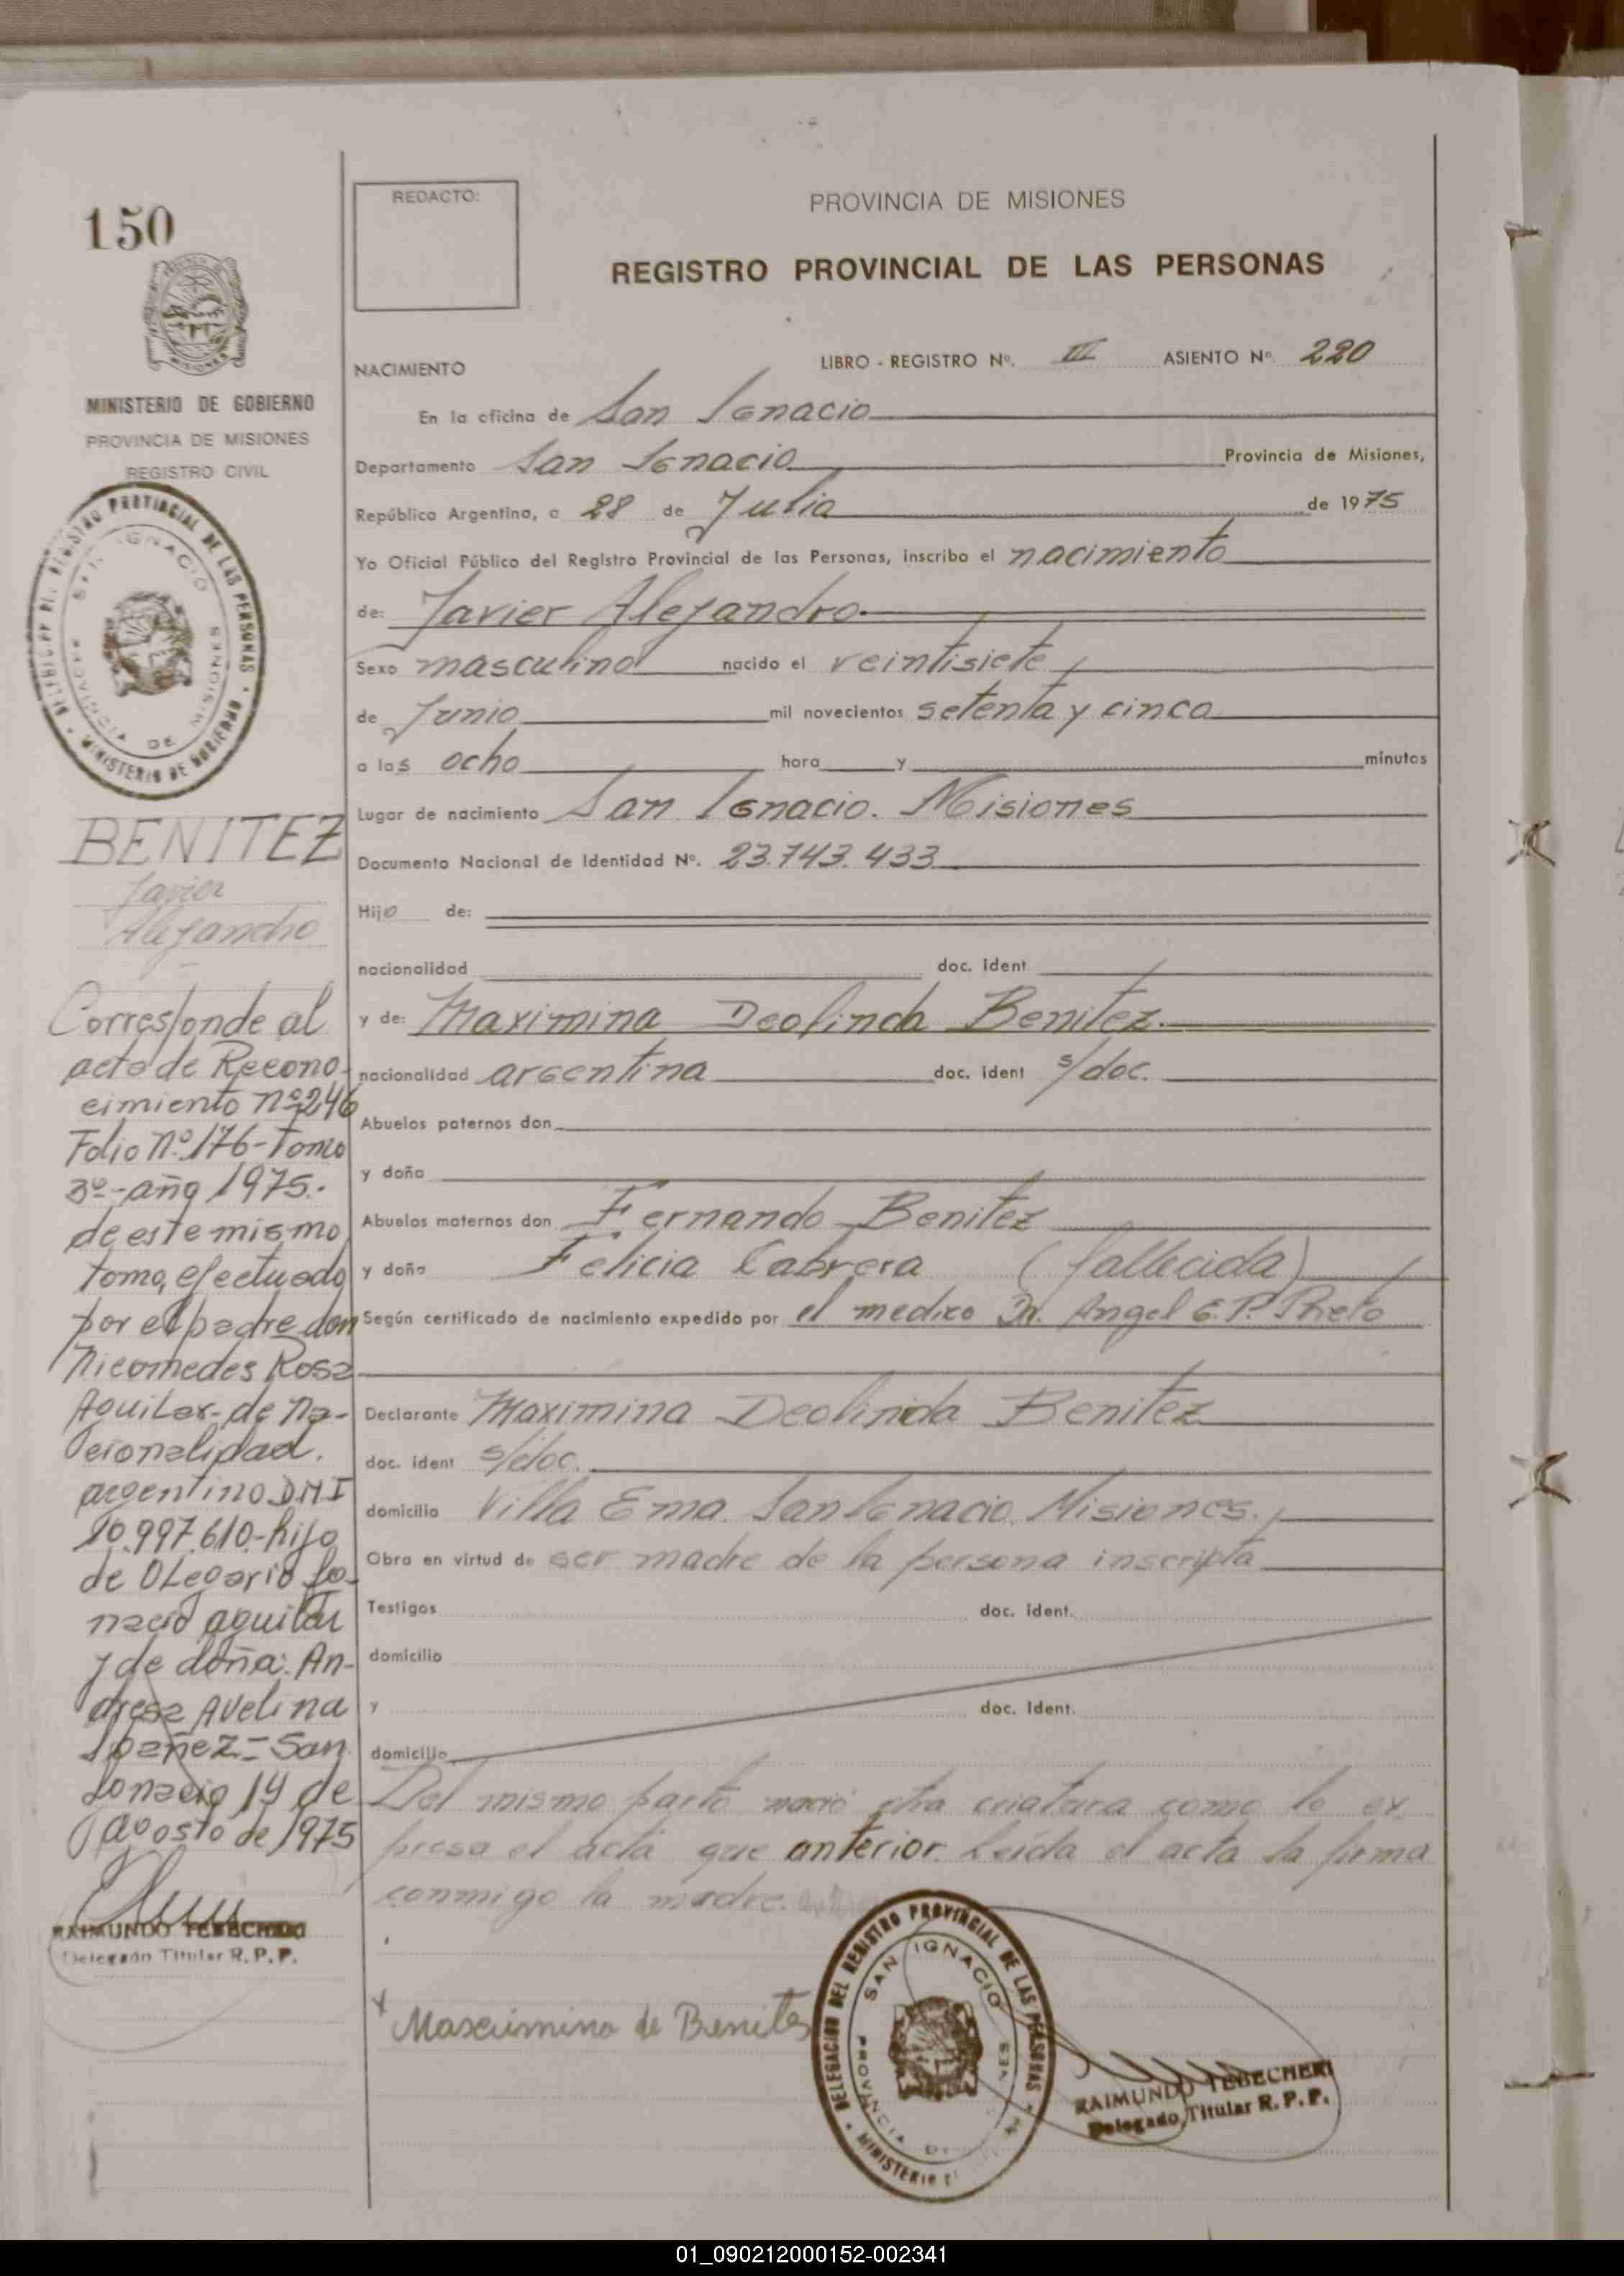 150
REDACTO:
PROVINCIA DE MISIONES
REGISTRO PROVINCIAL DE LAS PERSONAS
MINISTERIO DE GOBIERNO
PROVINCIA DE MISIONES
REGISTRO CIVIL
SAN IGNACIO
PROVINCIA DE MISIONES
MINISTERIO DE GOBIERNO
BENITEZ
Javier
Alejandro
Corresponde al
acta de Recono-
cimiento nº 246
Folio Nº 176 - Tomo
3º - año 1975.-
de este mismo
tomo, efectuado
por el padre don
Nicomedes Rosa
Aguilar - de na-
cionalidad
argentino D.N.I
10.997.610 - hijo
de Olegario Ig-
nacio aguilar
y de doña: An-
dresa Avelina
Ibañez - San
Ignacio 14 de
agosto de 1975
RAIMUNDO TEBECHERI
Delegado Titular R.P.P.
NACIMIENTO LIBRO - REGISTRO Nº. III ASIENTO Nº 220
En la oficina de San Ignacio
Departamento San Ignacio Provincia de Misiones,
República Argentina, a 28 de Julio de 1975
Yo Oficial Público del Registro Provincial de las Personas, inscribo el nacimiento
de: Javier Alejandro
Sexo masculino nacido el veintisiete
de Junio mil novecientos setenta y cinco
a las ocho hora y minutos
Lugar de nacimiento San Ignacio. Misiones
Documento Nacional de Identidad Nº. 23.743.433
Hijo de:
nacionalidad doc. ident
y de: Maximina Deolinda Benitez
nacionalidad argentina doc. ident s/doc.
Abuelos paternos don
y doña
Abuelos maternos don Fernando Benitez
y doña Felicia Cabrera (fallecida)
Según certificado de nacimiento expedido por el medico Dr. Angel E. P. Prieto
Declarante Maximina Deolinda Benitez
doc. ident s/doc.
domicilio Villa Ema. San Ignacio. Misiones.
Obra en virtud de ser madre de la persona inscripta
Testigos doc. ident.
domicilio
y doc. ident.
domicilio
Del mismo parto nació otra criatura como lo ex-
presa el acta que anterior. Leida el acta la firma
conmigo la madre.
x Mascimina de Benites
DELEGACION DEL REGISTRO PROVINCIAL DE LAS PERSONAS
SAN IGNACIO
RAIMUNDO TEBECHERI
Delegado Titular R.P.P.
01_090212000152-002341